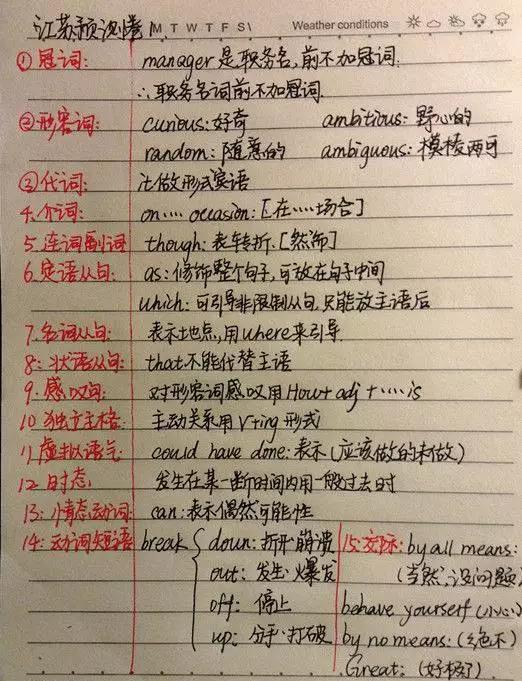 江苏预测卷 M T W T F S \ Weather conditions
①冠词: manager 是职务名,前不加冠词.
∴职务名词前不加冠词.
②形容词: curious:好奇 ambitious:野心的
random:随意的 ambiguous:模棱两可
③代词: it做形式宾语
4.介词: on……occasion:[在……场合]
5.连词副词 though:表转折.[然而]
6.定语从句: as:修饰整个句子,可放在句子中间
which:可引导非限制从句,只能放主语后
7.名词从句: 表示地点,用where来引导.
8:状语从句: that不能代替主语
9.感叹句: 对形容词感叹用How+adj+……is
10 独立主格: 主动关系用V+ing形式
11虚拟语气: could have done:表示(应该做的未做)
12时态 发生在某一断时间内用一般过去时
13:情态动词: can:表示偶然可能性
14:动词短语 break { down:折开·崩溃 15:交际: by all means:
out:发生·爆发 (当然,没问题)
off:停止 behave yourself(小心)
up:分手·打破 by no means:(绝不)
Great:(好极了)